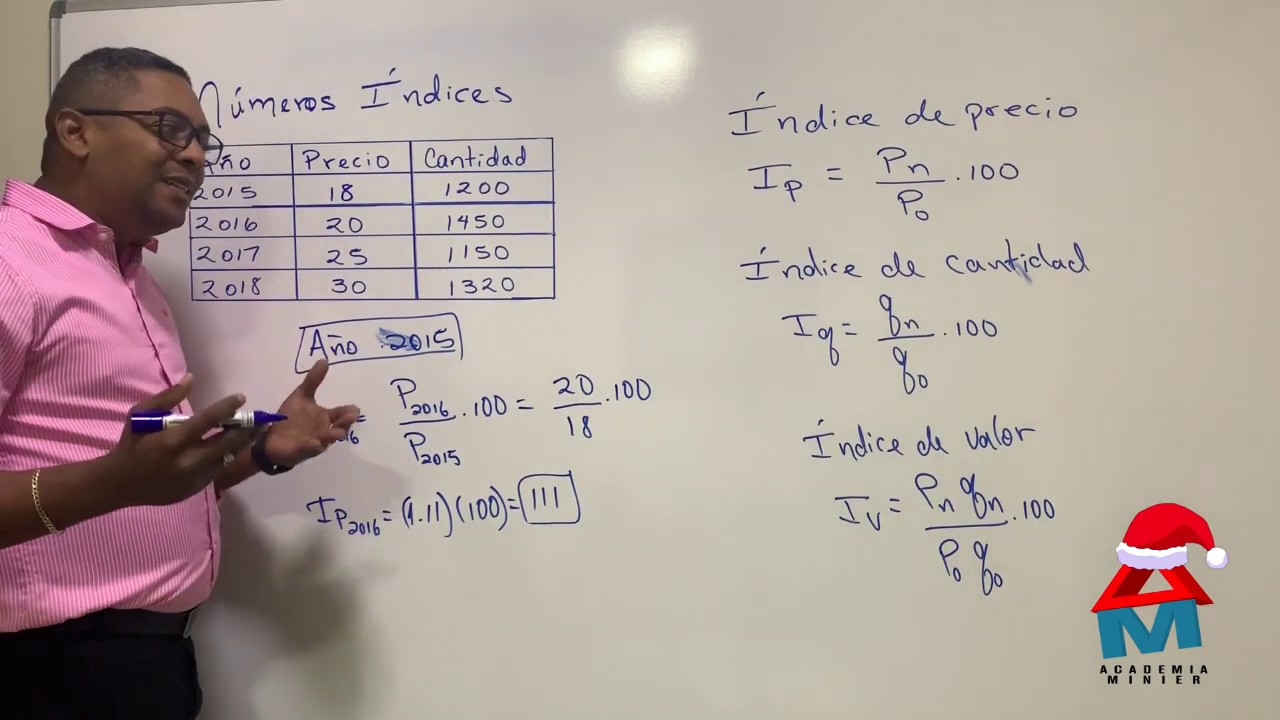 Números Índices
Año Precio Cantidad
2015 18 1200
2016 20 1450
2017 25 1150
2018 30 1320
Año 2015
P2016/P2015 . 100 = 20/18 . 100
IP2016 = (1.11)(100) = 111
Índice de precio
Ip = Pn/Po . 100
Índice de cantidad
Iq = qn/qo . 100
Índice de valor
Iv = Pn qn/Po qo . 100
ACADEMIA
MINIER